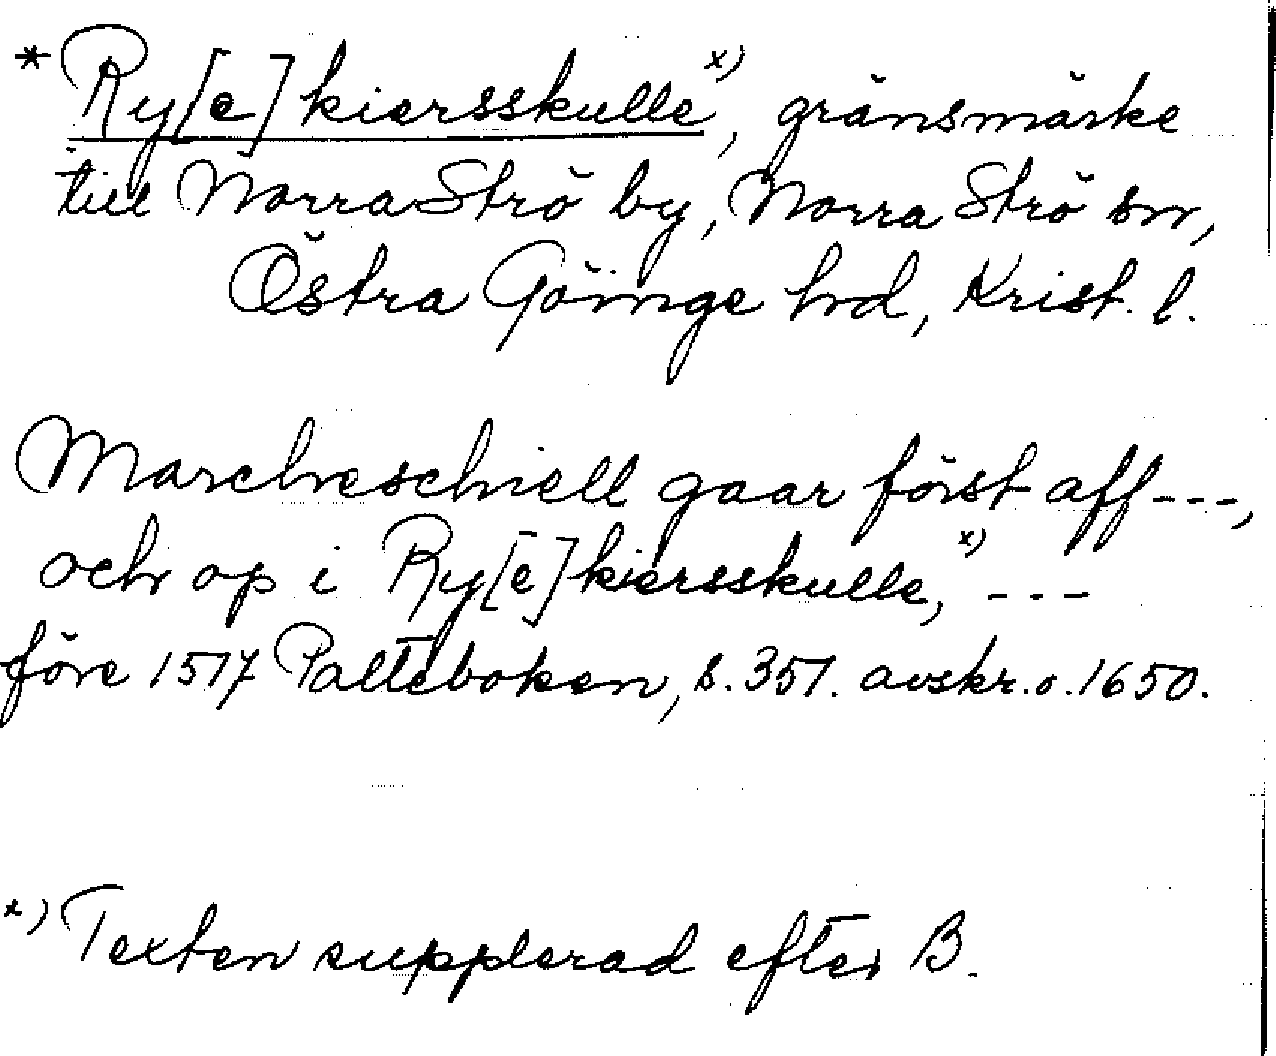 * Ry[e]kiersskulle x), gränsmärke
till Norra Strö by, Norra Strö sn,
Östra Göinge hd, Krist. l.
Marcheschiell gaar först aff ---,
och op i Ry[e]kiersskulle, x) ---
före 1517 Palteboken, s. 351. avskr. o. 1650.
x) Texten supplerad efter B.